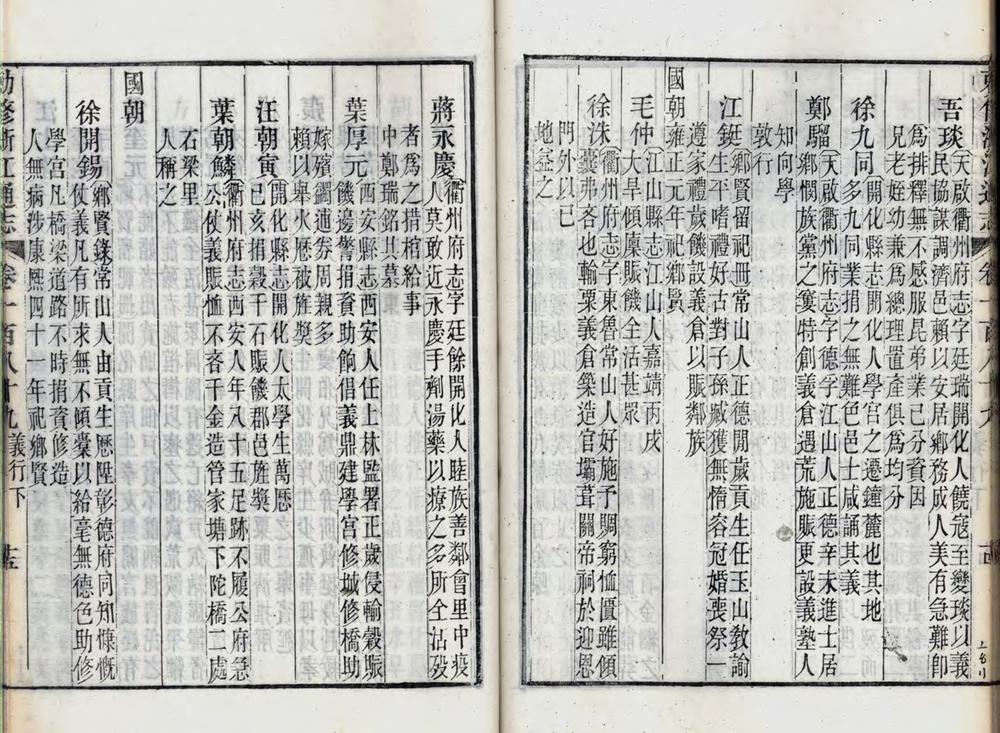 吾琰天啟衢州府志字廷瑞開化人饒寇至變琰以義
民協謀調濟邑賴以安居鄉務成人美有急難卽
為排釋無不感服昆弟業已分貲因
兄老姪幼兼爲總理置產俱爲均分
徐九同開化縣志開化人學宮之遷鐘麓也其地
多九同業捐之無難色邑士咸誦其義
鄭騮天啟衢州府志字德字江山人正德辛未進士居
鄉憫族黨之窶特創義倉遇荒施賑更設義塾人
知向學
敦行
江鋌鄉賢留祀冊常山人正德閒歲貢生任玉山教諭
生平嗜禮好古對子孫臧獲無惰容冠婚喪祭一
遵家禮歲饑設義倉以賑鄰族
國朝雍正元年祀鄉賢
毛仲江山縣志江山人嘉靖丙戌
大旱傾廩賑饑全活甚眾
徐洙衢州府志字東魯常山人好施予賙窮恤匱雖傾
囊弗吝也輸粟義倉築造官壩葺關帝祠於迎恩
門外以已
地益之
蔣永慶衢州府志字廷餘開化人睦族善鄰會里中疫
人莫敢近永慶手劑湯藥以療之多所全活歿
者爲之措棺給事
中鄭瑞銘其墓
葉厚元西安縣志西安人任上林監署正歲侵輸穀賑
饑邊警捐資助餉倡義鼎建學宮修城修橋助
嫁殯蠲逋券周親多
賴以舉火歷被旌獎
汪朝寅開化縣志開化人太學生萬歷
己亥捐穀千石賑饑郡邑旌獎
葉朝鱗衢州府志西安人年八十五足跡不履公府急
公仗義賑恤不吝千金造管家塘下陀橋二處
石梁里
人稱之
國朝
徐開錫鄉賢錄常山人由貢生歷陞彰德府同知慷慨
仗義凡有所求無不傾橐以給毫無德色助修
學宮凡橋梁道路不時捐資修造
人無病涉康熙四十一年祀鄉賢
勅修浙江通志 卷一百八十九 義行下